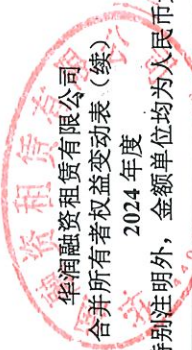 华润融资租赁有限公司
合并所有者权益变动表（续）
2024 年度
特别注明外，金额单位均为人民币
资租赁